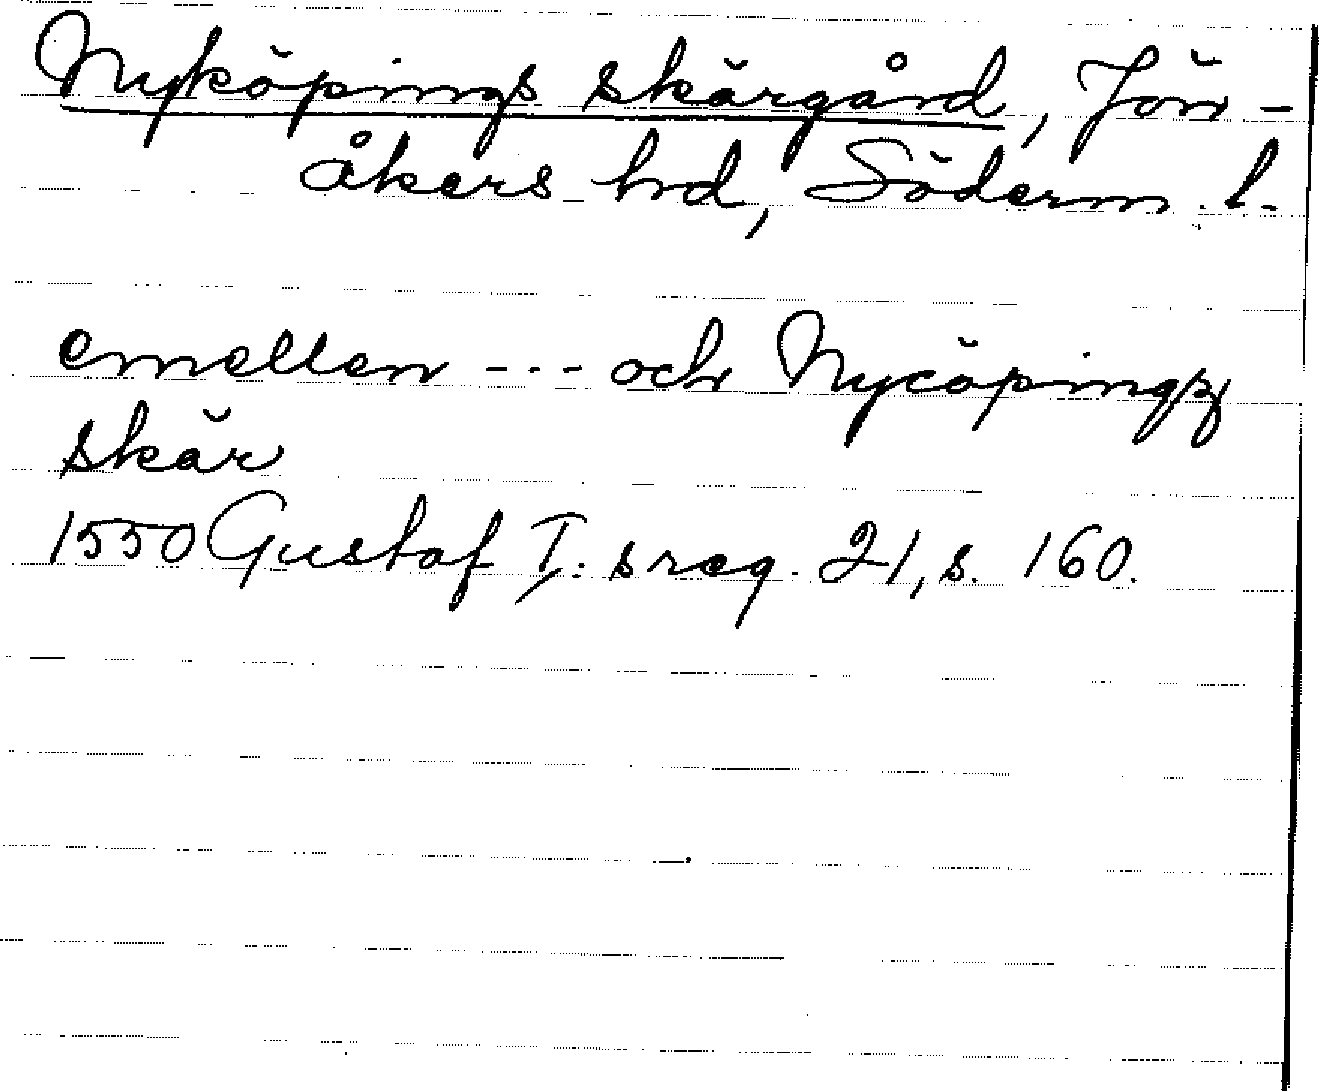 Nyköpings skärgård, Jön-
åkers hd, Söderm. l.
emellen --- och Nycöpingz
skär
1550 Gustaf I:s reg. 21, s. 160.